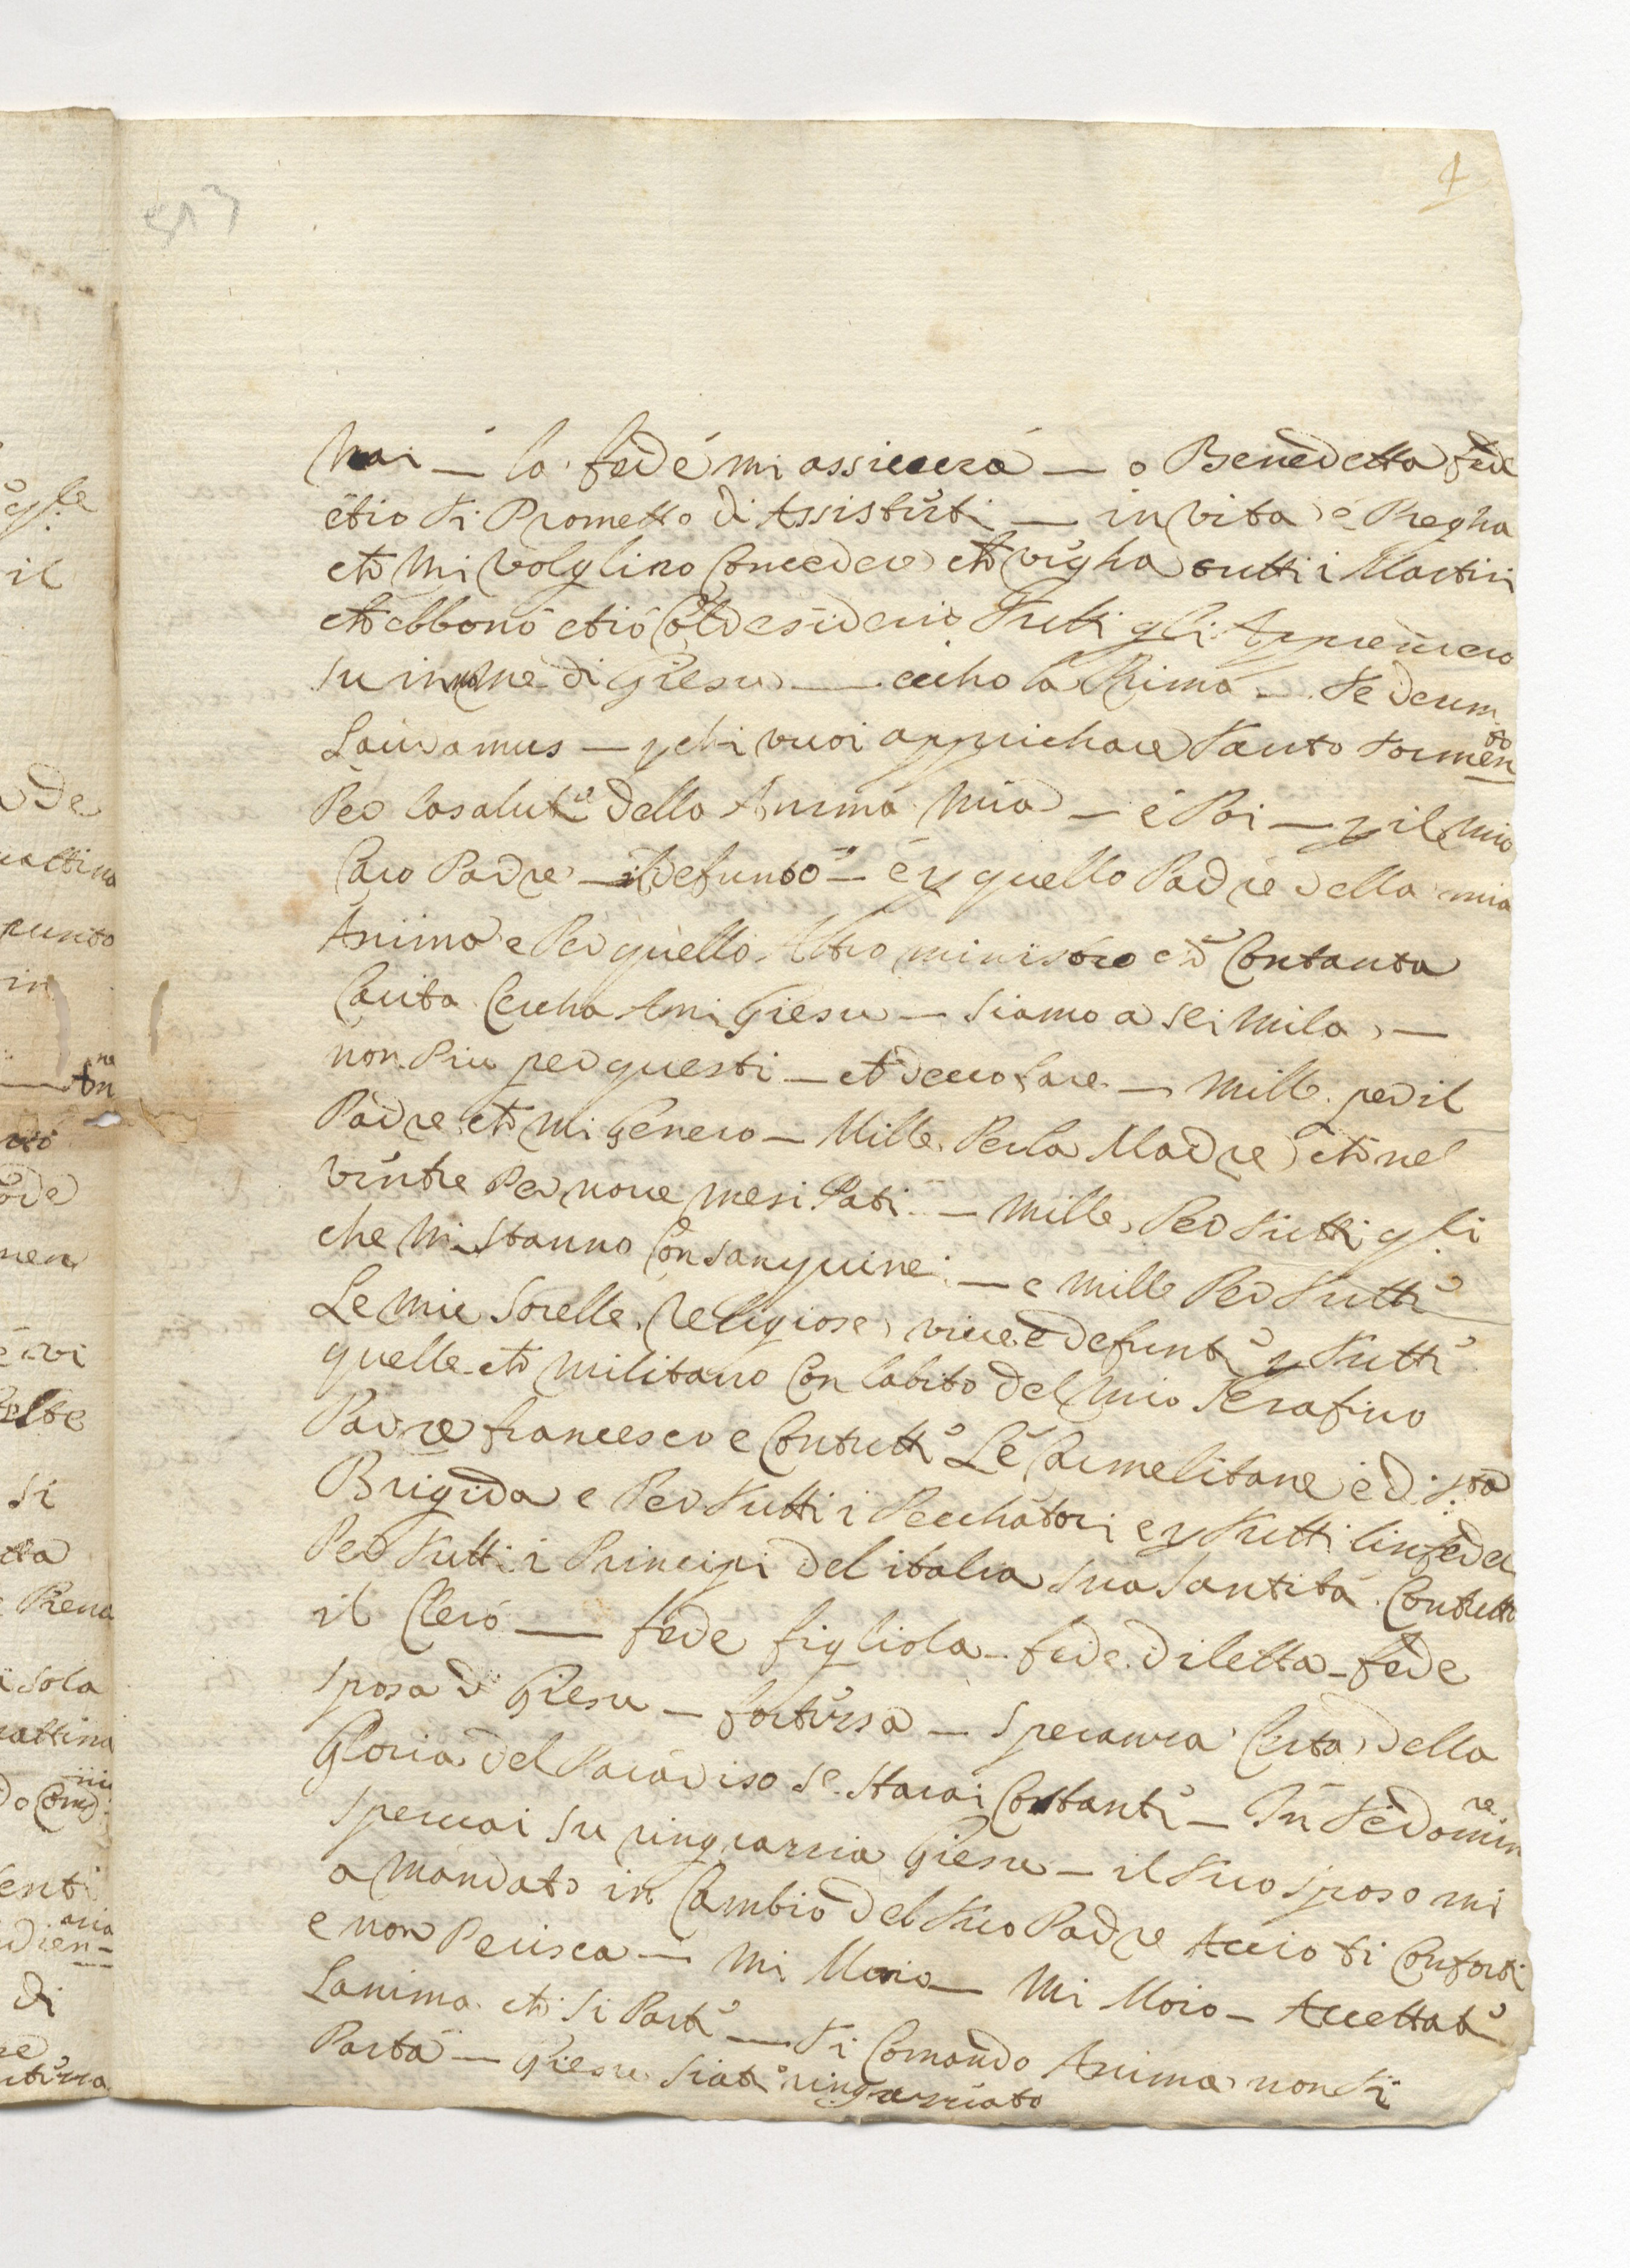 4
Mai — la fede mi assicura — o Benedetta fede
ch io ti Prometto di Assisterti — in vita e Pregha
ch mi volglino Concedere ch vigha tutti i Martiri
ch ebbono ch io Col desiderio Tutti gli Apprendero
Su in nome di Giesu — eccho la Prima — Te deum
Laudamus — p chi vuoi appricharre Tanto tormento
Per la salute della Anima Mia — e Poi — p il mio
Caro Padre — il defunto — e p quello Padre della mia
Anima e Per quello Altro ministro ch Con tanta
Carita Cercha A mi Giesu — Siamo a sei mila —
non Piu per questi — ch devo fare — mille per il
Padre ch mi Genero — Mille Per la Madre ch nel
Ventre Per nove mesi Pati — mille Per tutti gli
che mi stanno Consanguinei — e mille Per tutte
Le mie Sorelle Religiose vive e defunte p tutte
quelle ch militano Con labito del mio Serafino
Padre francesco e Con tutte Le Carmelitane e di S.ta
Brigida e Per tutti i Pecchatori e p tutti linfedel
Per tutti i Principi del italia Sua Santita Con tutto
il Clero — fede figliola — fede diletta — fede
sposa di Giesu — fortezza — speranza Certa della
Gloria del Paradiso se starai Costante — In te domine
speravi su ringrazia Giesu — il tuo sposo mi
a mandato in Cambio del tuo Padre Accio ti Conforti
e non Perisca — Mi Moio — Mi Moio — Accettate
Lanima ch si Parte — Ti Comando Anima non ti
Parta — Giesu Siate ringraziato